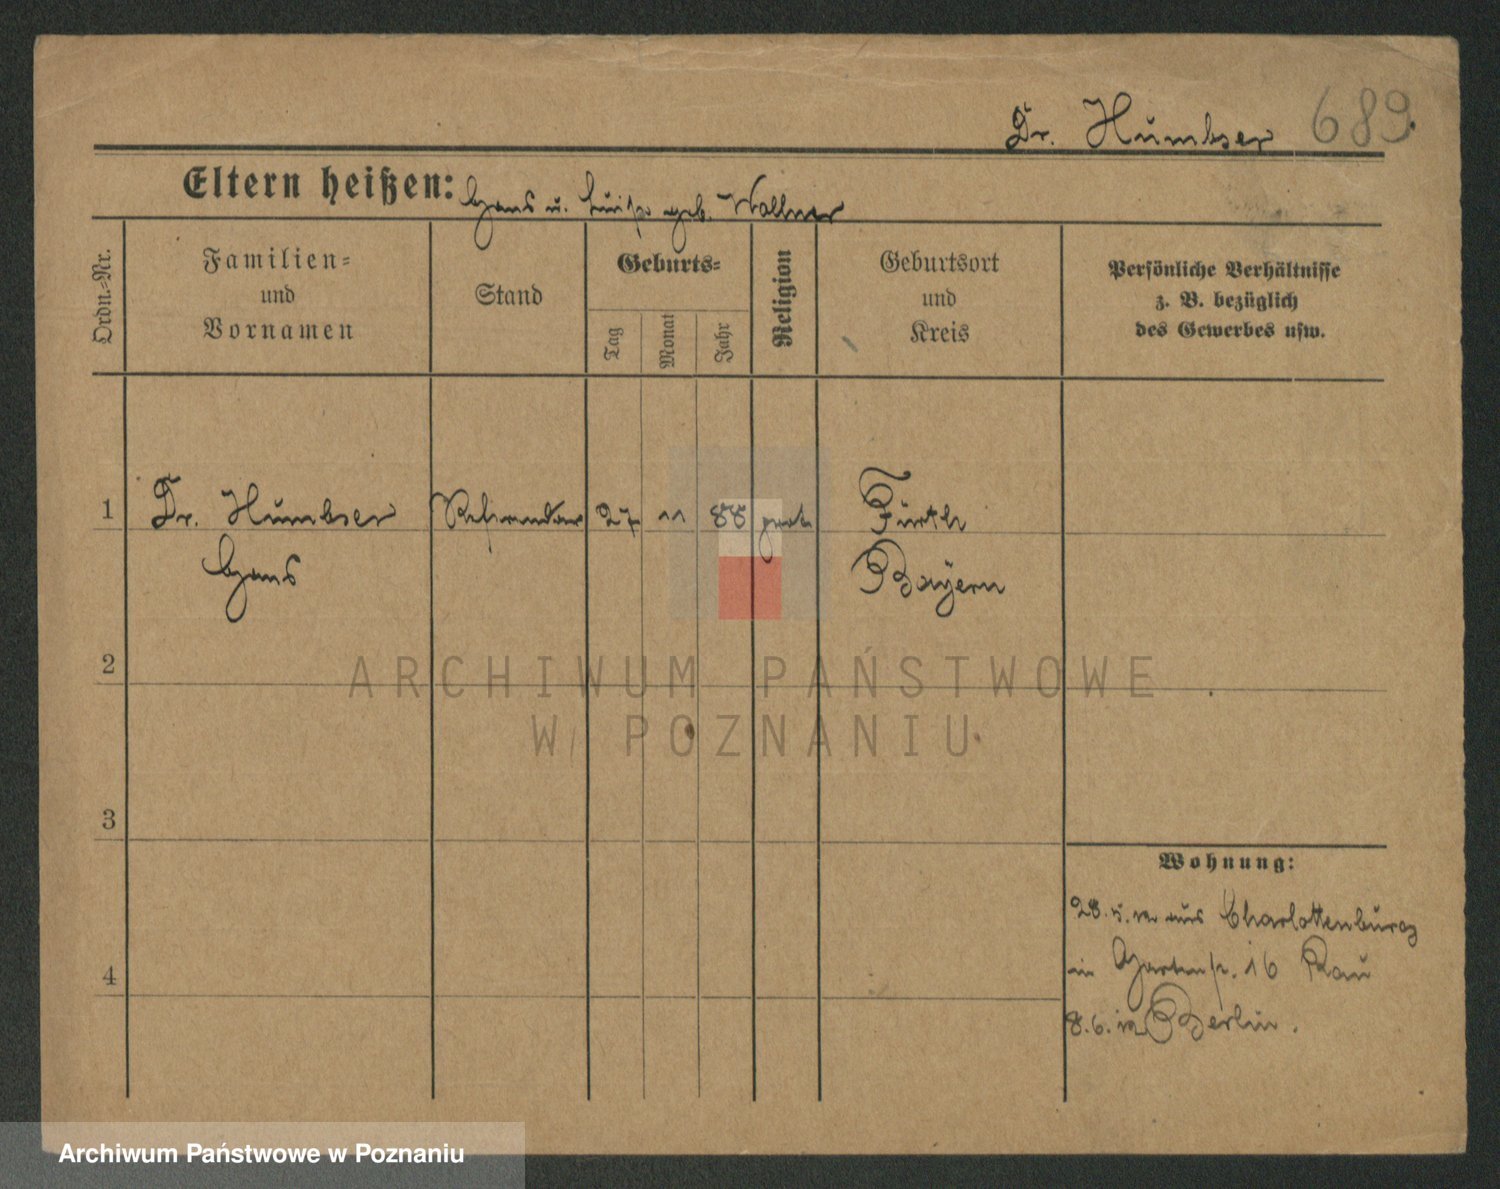 Dr. Humbser 689.
Eltern heißen: Hans u. Luise geb. Wollner
Ordn.-Nr.
Familien-
und
Vornamen
Stand
Geburts-
Tag
Monat
Jahr
Religion
Geburtsort
und
Kreis
Persönliche Verhältnisse
z. B. bezüglich
des Gewerbes usw.
1 Dr. Humbser Referendar 27 11 88 prot. Fürth
Hans Bayern
2
ARCHIWUM PAŃSTWOWE
W POZNANIU
3
Wohnung:
28. 5. 12 aus Charlottenburg
4 in Gartenstr. 16 Rau
8. 6. 12 Berlin.
Archiwum Państwowe w Poznaniu